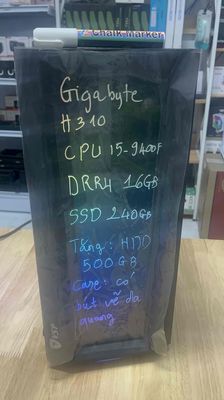 Chalk marker
Gigabyte
H310
CPU i5-9400F
DRR4 16GB
SSD 240GB
Tặng: HDD
500GB
Case: có
bút vẽ dạ
quang
VSP